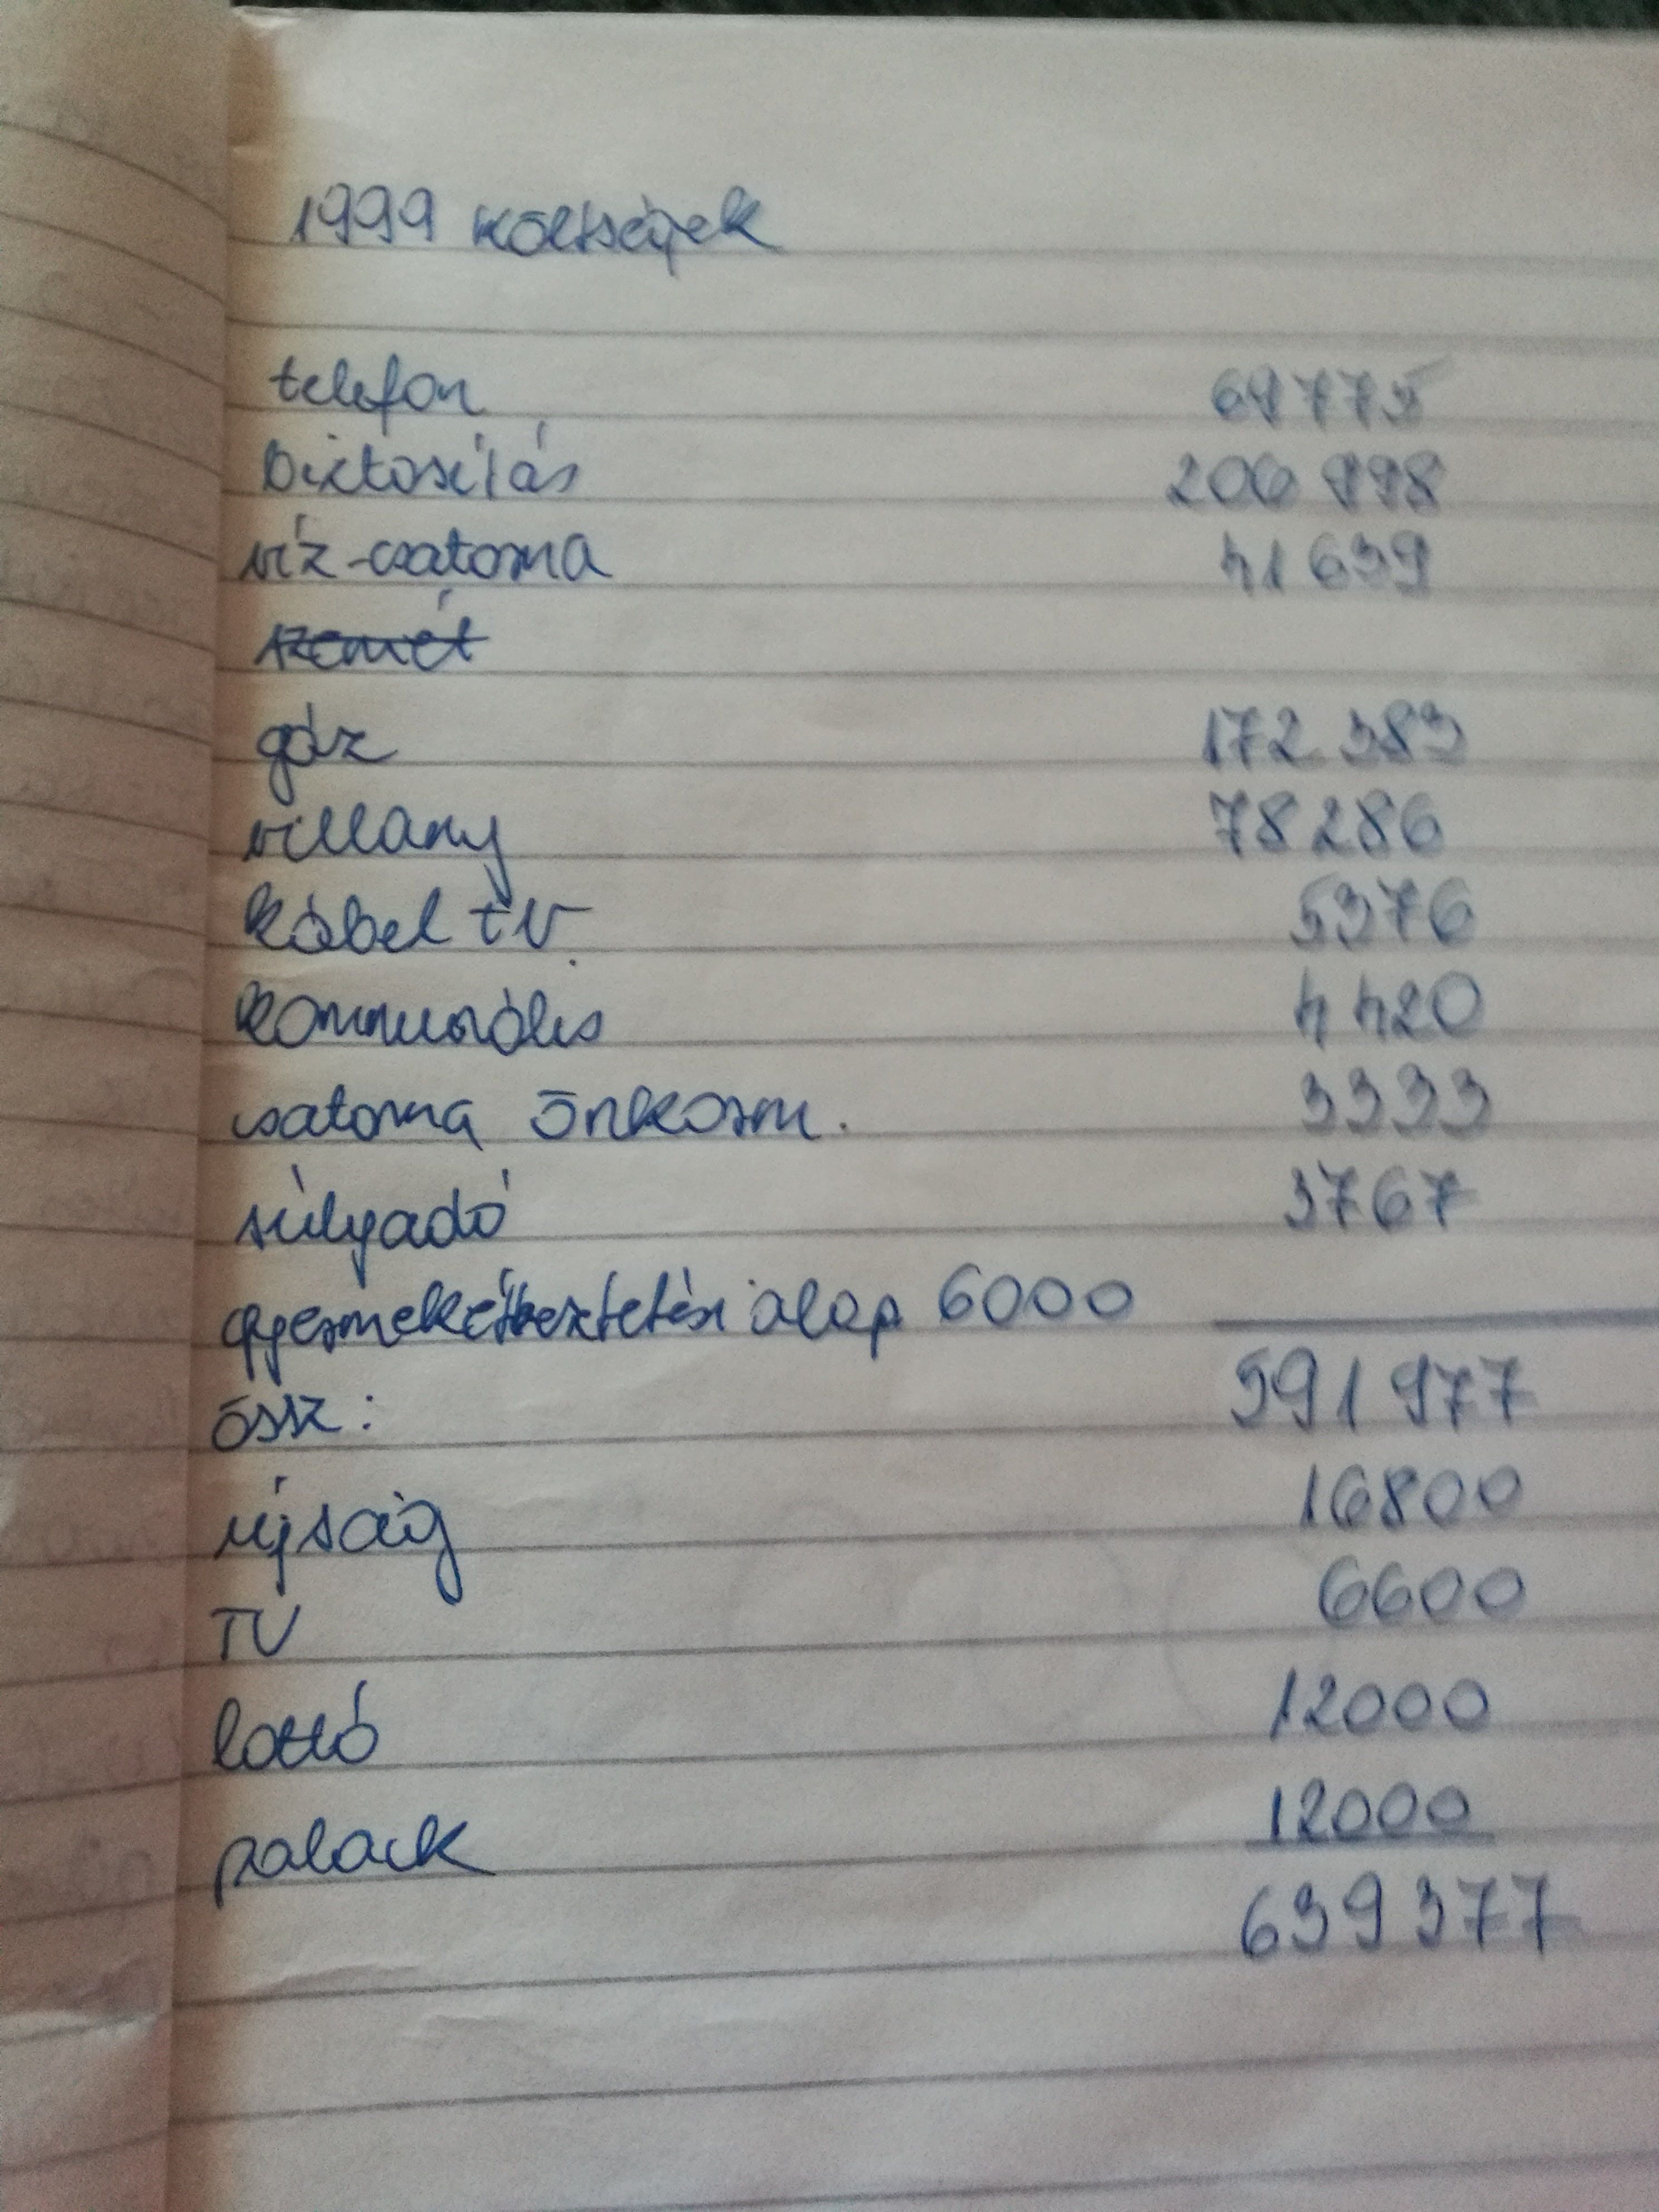 1999 költségek
telefon 69775
biztosítás 206 998
víz-csatorna 41 639
szemét
gáz 172 383
villany 78 286
kábel tv. 5376
kommunális 4 420
csatorna önkorm. 3333
súlyadó 3767
gyermekétkeztetési alap 6000
össz: 591 977
újság 16800
TV 6600
lottó 12000
palack 12000
639 377